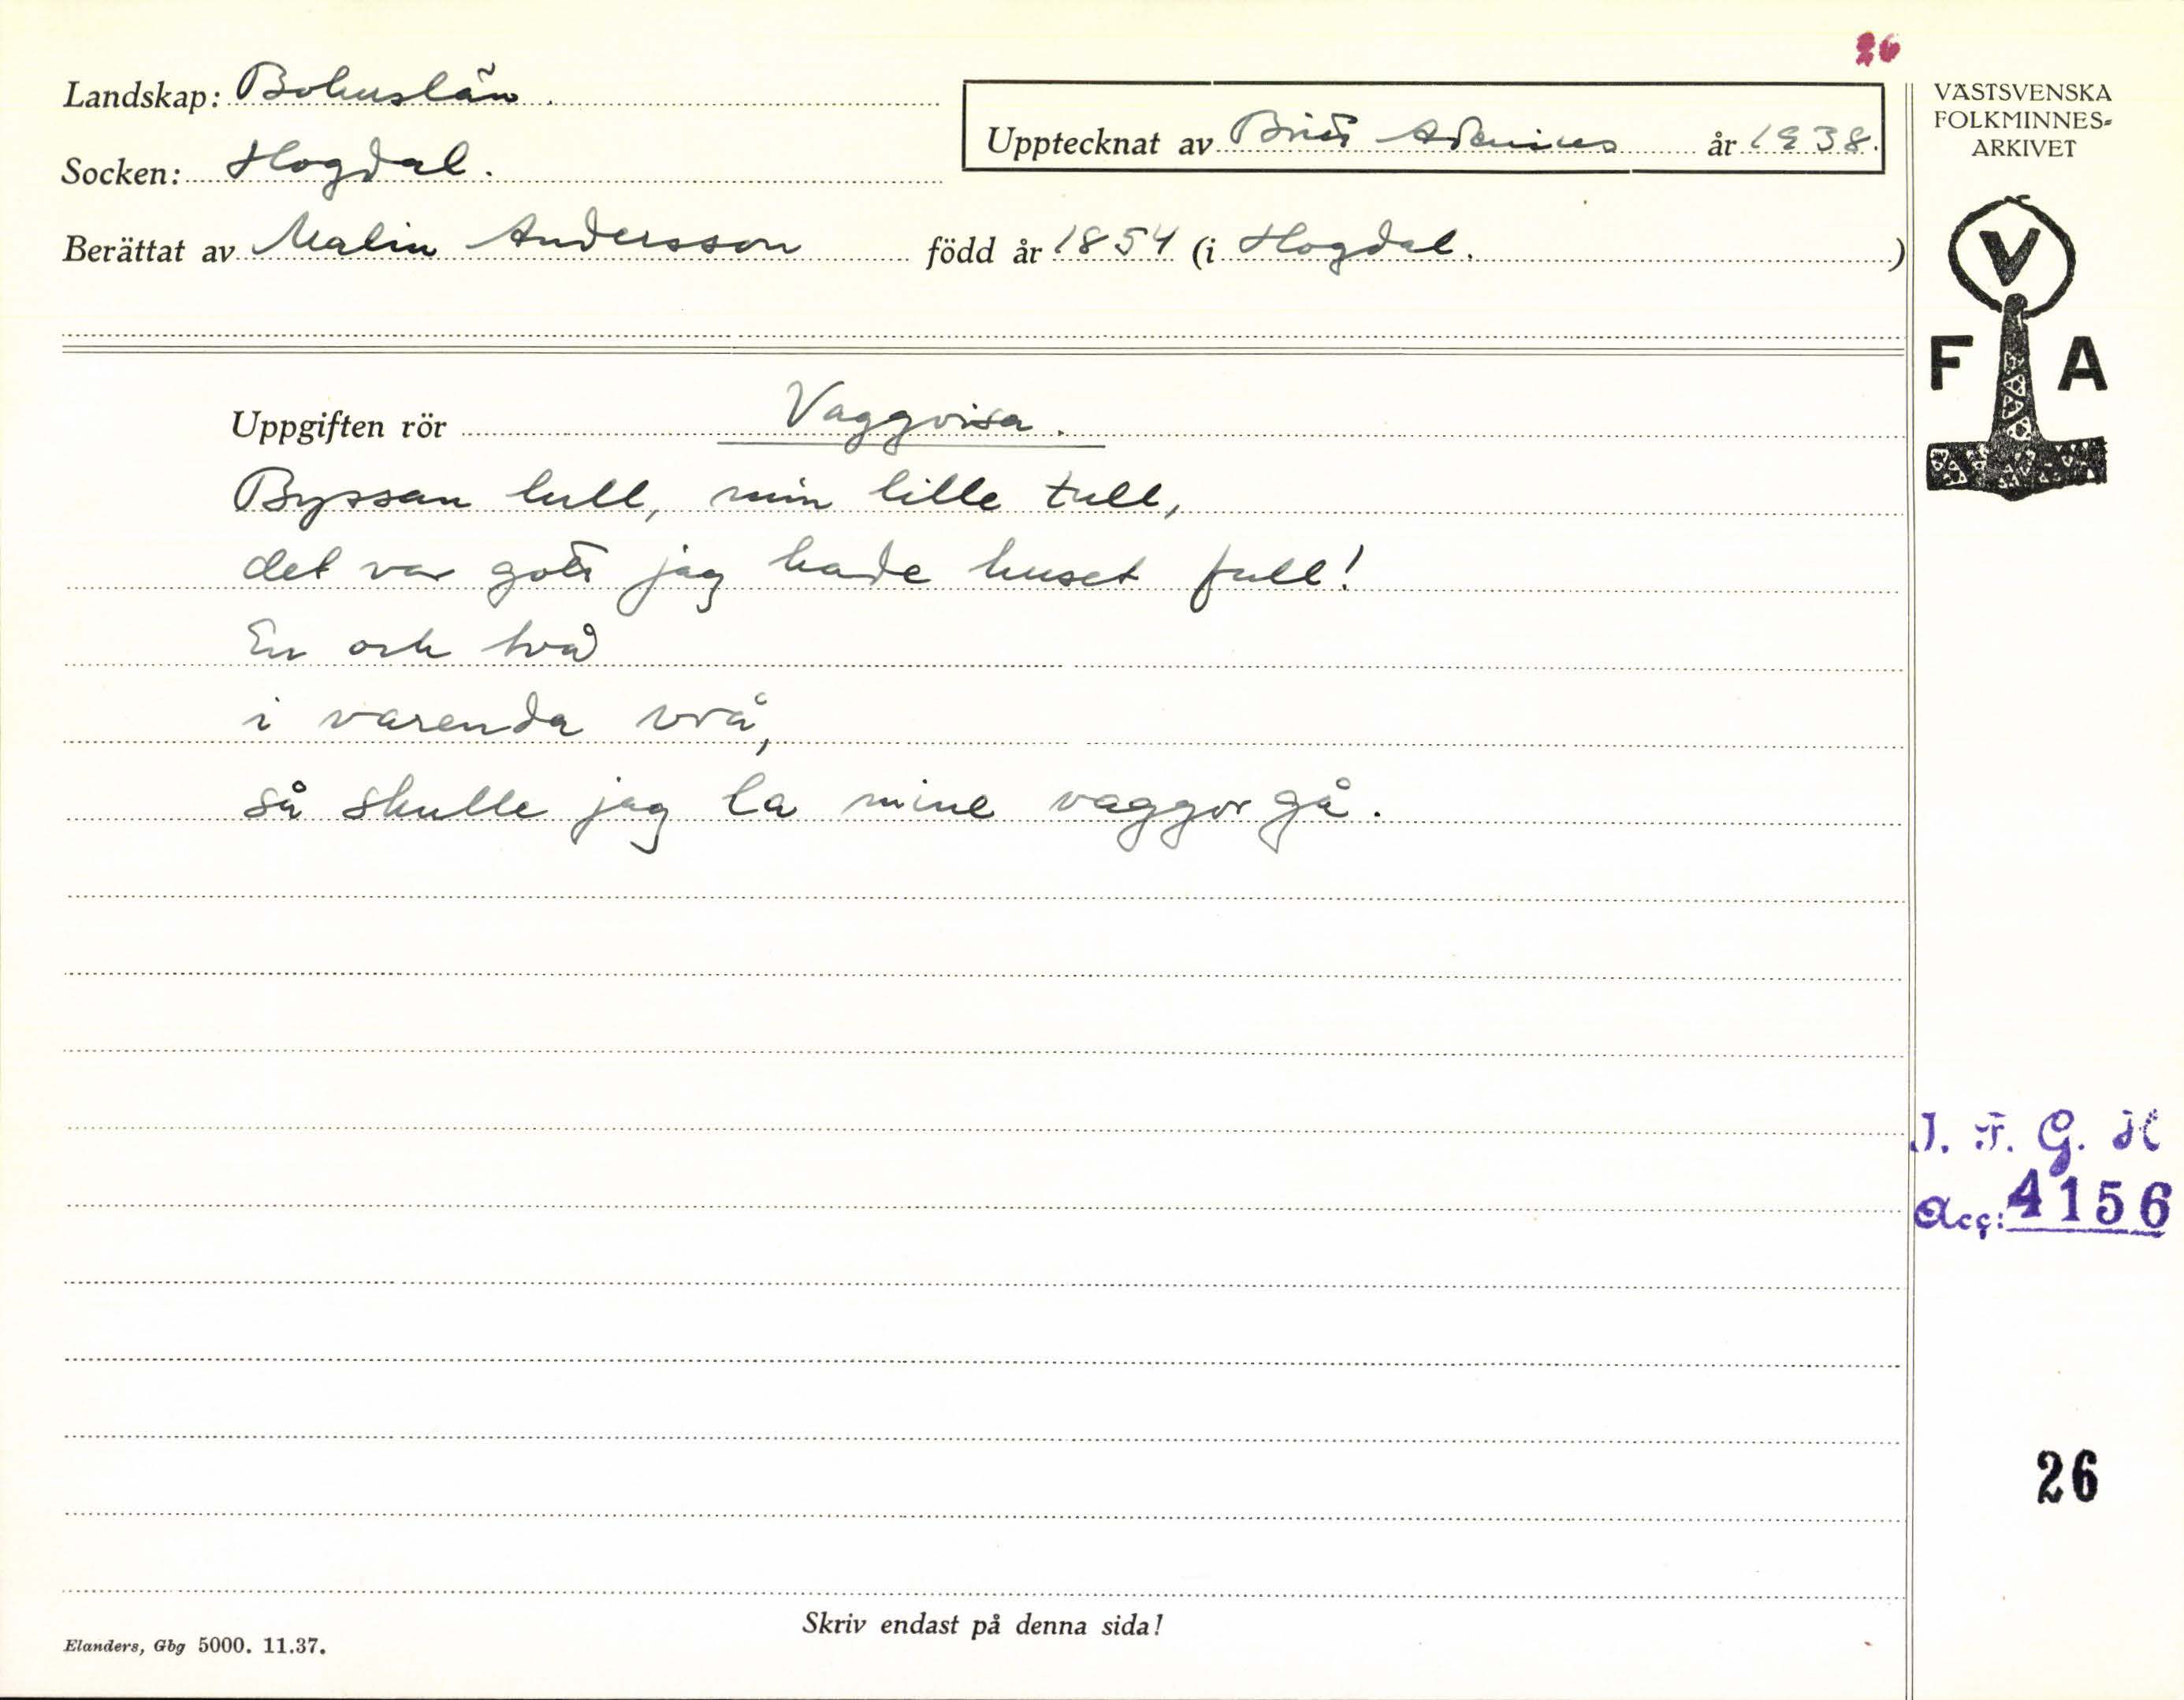 26
Landskap: Bohuslän.
Upptecknat av Britt Adenius år 1938.
Socken: Hogdal.
Berättat av Malin Andersson född år 1854 (i Hogdal.)
Uppgiften rör Vaggvisa.
Byssan lull, min lille tull,
det var gott jag hade huset full!
En och två
i varenda vrå,
så skulle jag la mine vaggor gå.
VÄSTSVENSKA
FOLKMINNES-
ARKIVET
V
F A
I. F. G. H
Acc: 4156
26
Skriv endast på denna sida!
Elanders, Gbg 5000. 11.37.